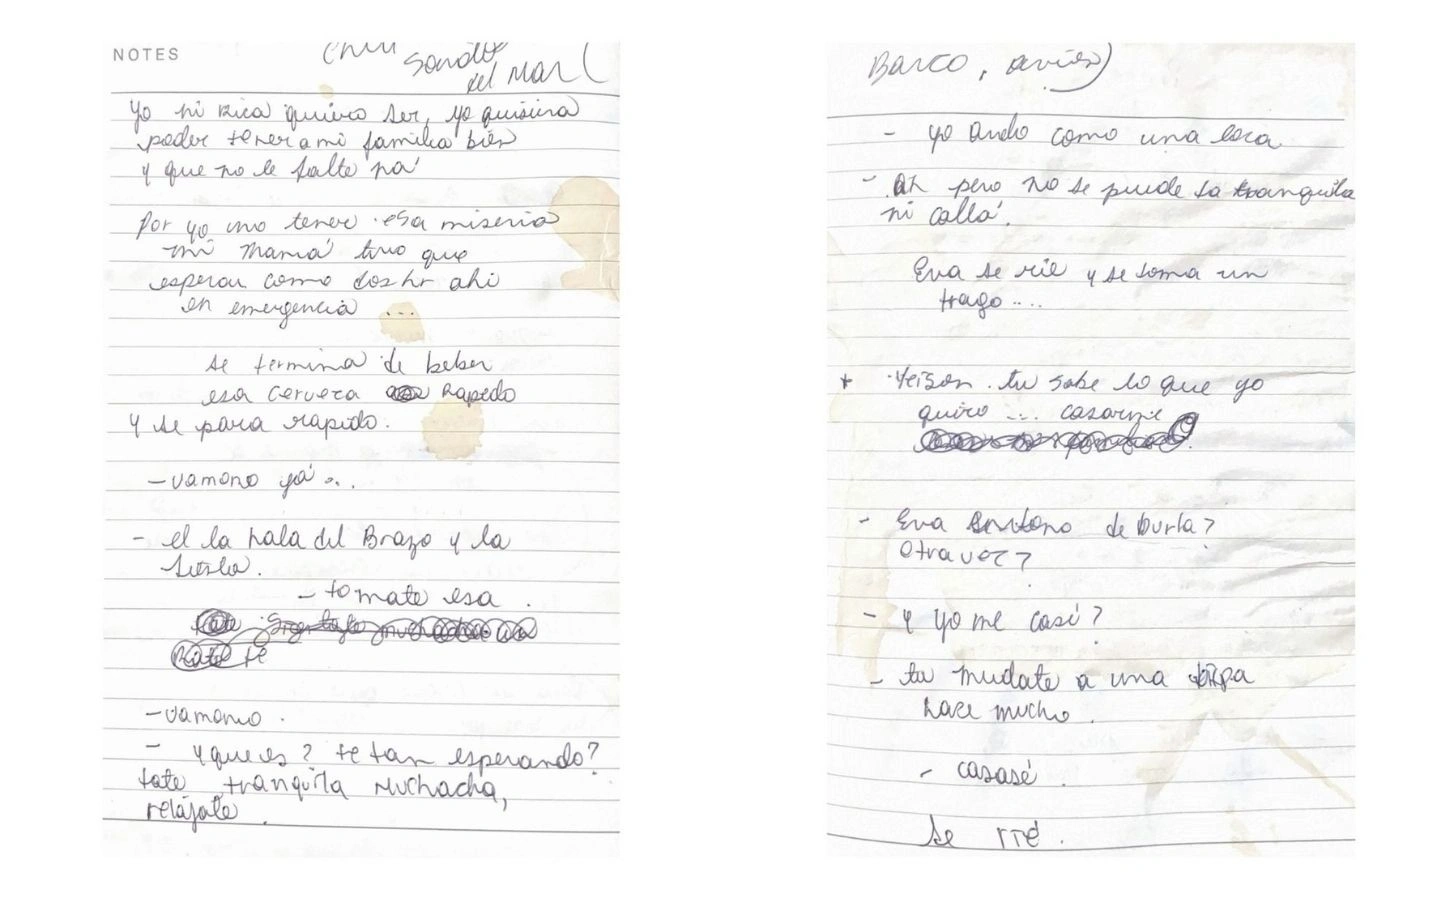 NOTES
sonido
del mar (
Yo ni rica quiero ser, yo quisiera
poder tener a mi familia bien
y que no le falte na'
Por yo uno tener esa miseria
mi mamá tuvo que
esperar como dos hr ahi
en emergencia ...
se termina de beber
esa cerveza rapedo
y se para rapido.
- vamono ya'...
- el la hala del Brazo y la
- tomate esa.
- vamono.
- y que es? te tan esperando?
tate tranquila muchacha,
relájate.
Barco, avión)
- yo ando como una loca
- Ah pero no se puede ta tranquila
ni callá.
Eva se rie y se toma un
trago....
* Yeison tu sabe lo que yo
quiro ... casarme
- Eva en tono de burla?
Otra vez?
- Y yo me casé?
- tu mudate a una tipa
hace mucho.
- casasé.
Se rié.